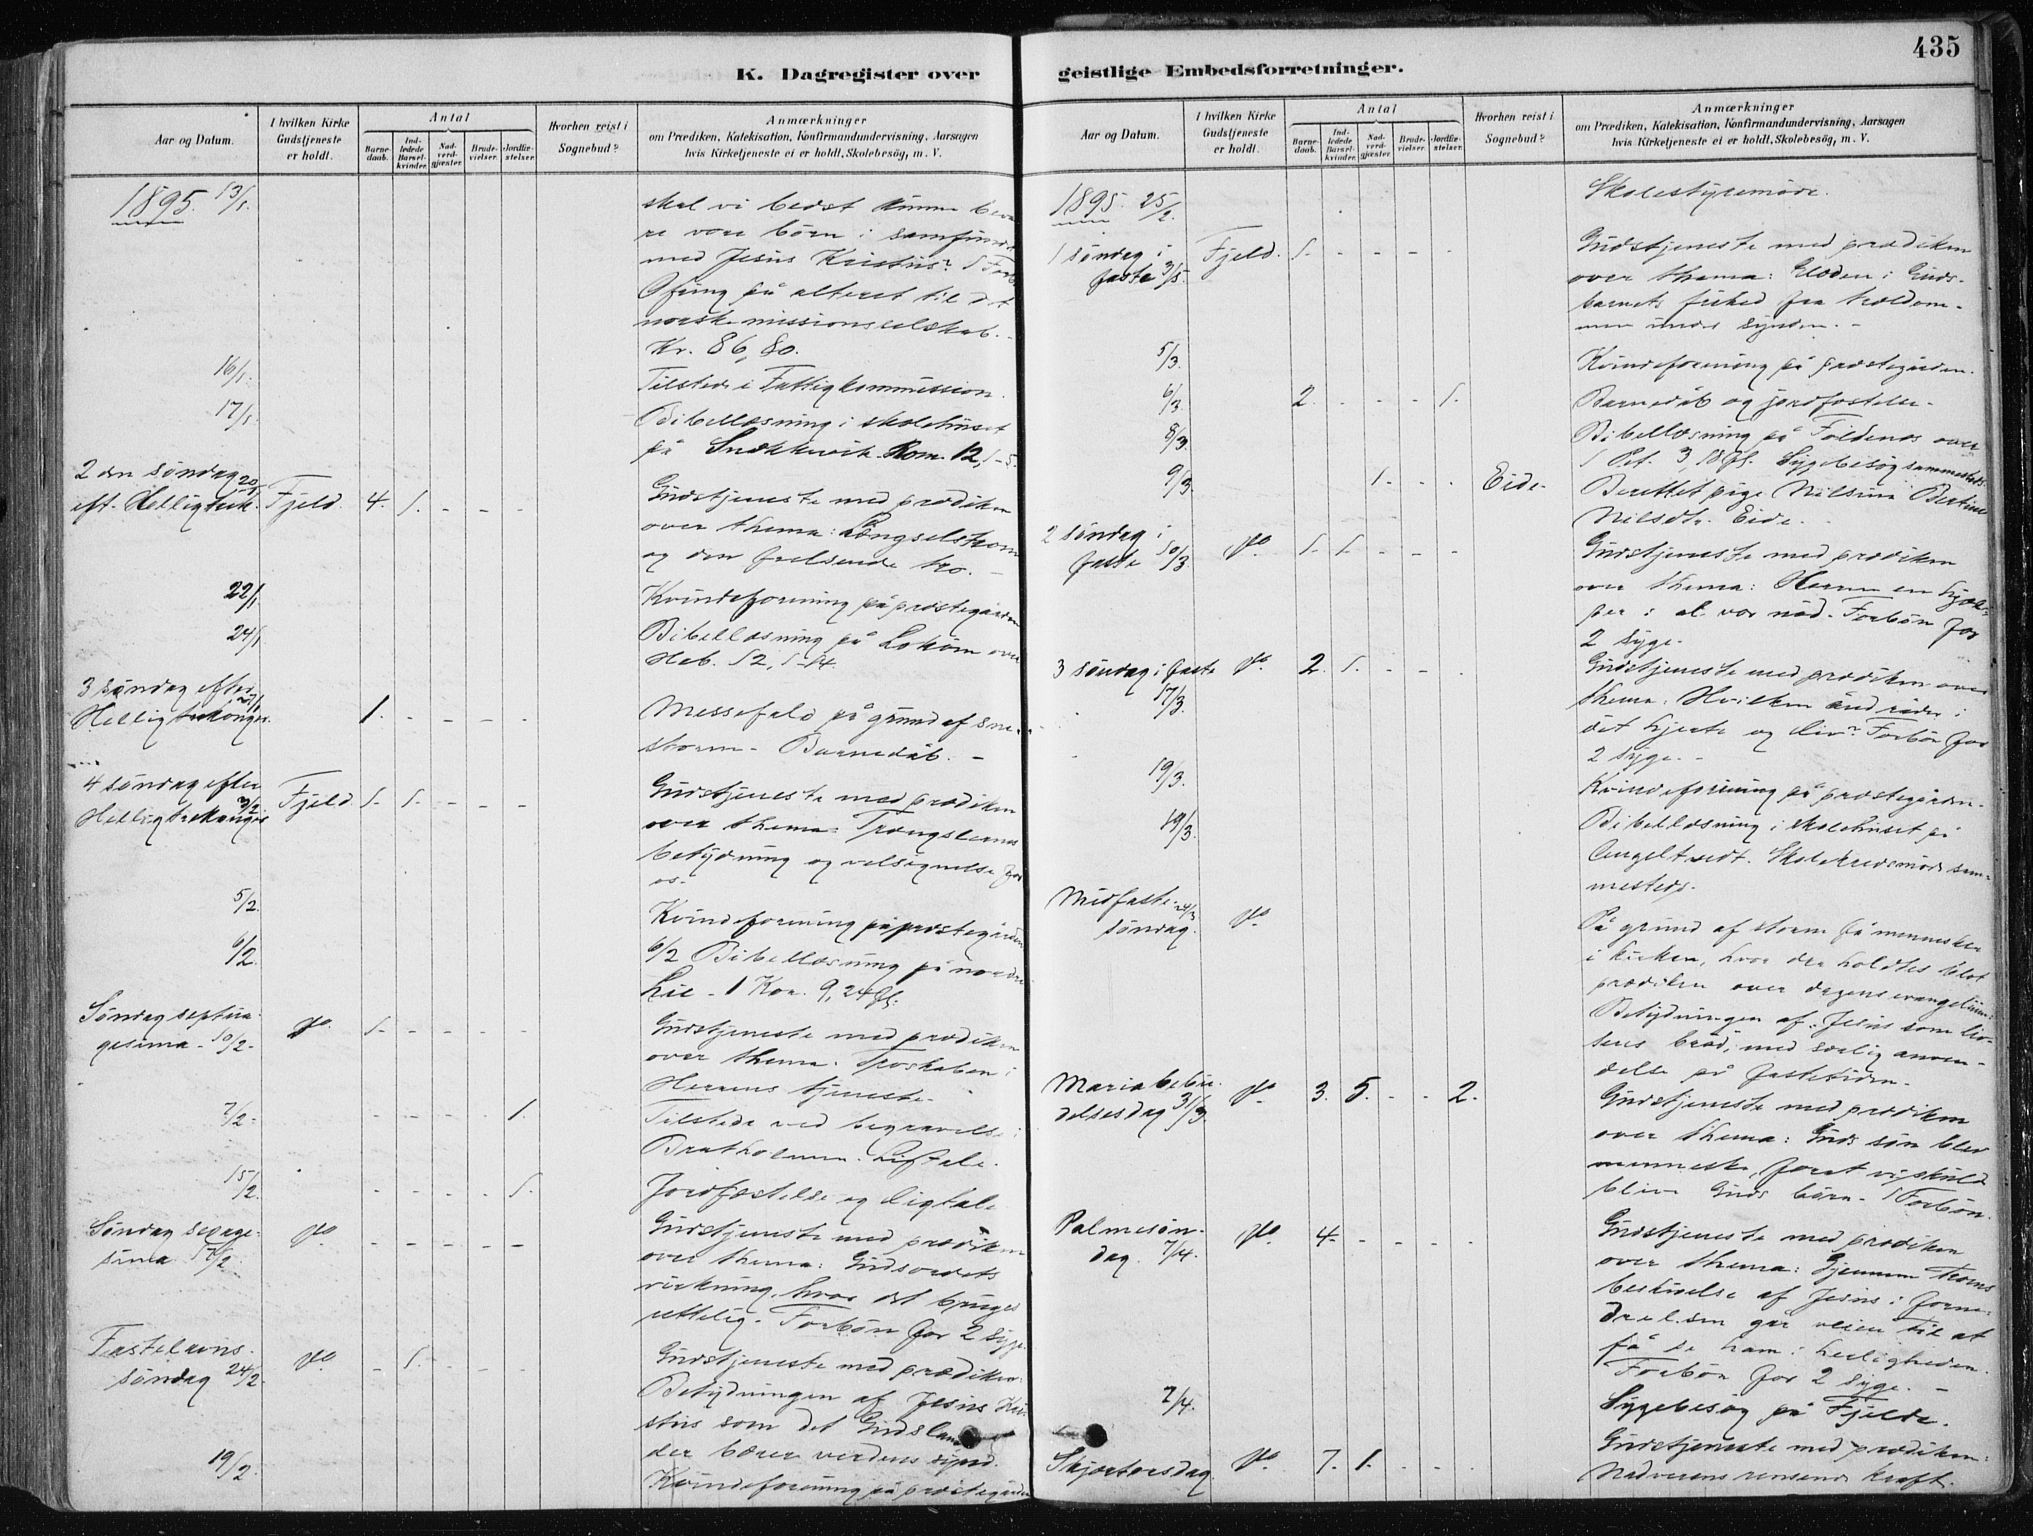 435
K. Dagregister over
Aar og Datum.
I hvilken Kirke Gudstjeneste er holdt.
Antal
Barnedaab.
Indledede Barselkvinder.
Nadverdgjæster.
Brudevielser.
Jordfæstelser.
Hvorhen reist i Sognebud?
Anmærkninger
om Prædiken, Katekisation, Konfirmandundervisning, Aarsagen
hvis Kirketjeneste ei er holdt, Skolebesög, m. V.
1895. 13/1.
skal vi bedst kunne beva
re vore børn i samfund
med Jesus Kristus? 1 Forb.
Ofring på alteret til det
norske missionsselskab.
Kr. 86,80.
16/1. Tilstede i Fattigkommission.
17/1. Bibellæsning i skolehuset
på Snekkevik Rom. 12, 1-5.
2 den søndag 20/1
eft. Helligtrek. Fjeld. 4. 1. - - -
Gudstjeneste med prædiken
over thema: Længselstroen
og den frelsende tro. -
22/1 Kvindeforening på prestegården
24/1 Bibellæsning på Lokøen over
Heb. 12, 1-14.
3 søndag efter 27/1
Helligtrekonger. 1. - - - -
Messefald på grund af sne-
storm - Barnedåb. -
4 søndag efter
Helligtrekonger 3/2 Fjeld 1. 1. - - -
Gudstjeneste med prædiken
over thema: Trængslernes
betydning og velsignelse for
os.
5/2. Kvindeforening på prestegården
6/2. 6/2 Bibellæsning på nordre
Lie - 1 Kor. 9, 24 ff.
Søndag septua-
gesima - 10/2 - do. 1. - - - -
Gudstjeneste med prædiken
over thema. Troskaben i
Herrens tjeneste.
7/2 - - - - 1.
Tilstede ved begravelse i
Bratholmen. Ligtale.
15/2. - - - - 1.
Jordfæstelse og ligtale
Søndag sexage-
sima 17/2 do. - - - - -
Gudstjeneste med prædiken
over thema: Gudsordets
virkning, hvor det bruges
rettelig. Forbøn for 2 syge.
Fastelavns-
søndag 24/2. do. - 1. - - -
Gudstjeneste med prædiken:
Betydningen af Jesus Kri-
stus som det Guds lam
der bærer verdens synd.
19/2. Kvindeforening på prestegården
geistlige Embedsforretninger.
Aar og Datum.
I hvilken Kirke Gudstjeneste er holdt.
Antal
Barnedaab.
Indledede Barselkvinder.
Nadverdgjæster.
Brudevielser.
Jordfæstelser.
Hvorhen reist i Sognebud?
Anmærkninger
om Prædiken, Katekisation, Konfirmandundervisning, Aarsagen
hvis Kirketjeneste ei er holdt, Skolebesög, m. V.
1895. 25/2. Skolestyremöde.
1 søndag i
faste 3/3. Fjeld. 1. - - - -
Gudstjeneste med prædiken
over thema: Glæden i Guds-
barnets frihed fra trældom-
men under synden. -
5/3. Kvindeforening på prestegården.
6/3. 2. - - - 1. Barnedåb og jordfæstelse -
8/3. Bibellæsning på Foldenes over
1 Pet. 3, 18 ff. Sygebesøg sammesteds
9/3. 1. - - Eide.
Berettet pige Nilsina Bertine
Nilsdtr. Eide. -
2 søndag i
faste 10/3. do 1. 1. - - -
Gudstjeneste med prædiken
over thema: Herren en hjæl-
per i al vor nød - Forbøn for
2 syge -
3 søndag i faste
17/3. do. 2. 1. - - -
Gudstjeneste med prædiken over
thema: Hvilken ånd råder i
dit hjerte og liv? Forbøn for
2 syge. -
19/3. Kvindeforening på prestegården.
19/3. Bibellæsning i skolehuset på
Angeltvedt. Skolekredsmöde sam-
mesteds.
Midfaste- 24/3
søndag. do.
På grund af storm få mennesker
i kirken, hvor der holdtes blot
prædiken over dagens evangelium:
Betydningen af Jesus som liv-
sens brød, med særlig anven-
delse på fastetiden.
Maria bebu-
delsesdag 31/3. do. 3. 5. - - 2.
Gudstjeneste med prædiken
over thema: Guds søn blev
menneske, foråt vi skulde
blive Guds børn - 1 Forbøn.
Palmesøn-
dag. 7/4. do. 4. - - - -
Gudstjeneste med prædiken
over thema: Gjennem Troens
beskuelse af Jesus i forne-
drelsen går veien til at
få se ham i herligheden.
Forbøn for 2 syge. -
7/4. Sygebesøg på Fjelde.
Skjærtorsdag do. 7. 1. - - -
Gudstjeneste med prædiken:
Nadverens rensende kraft.